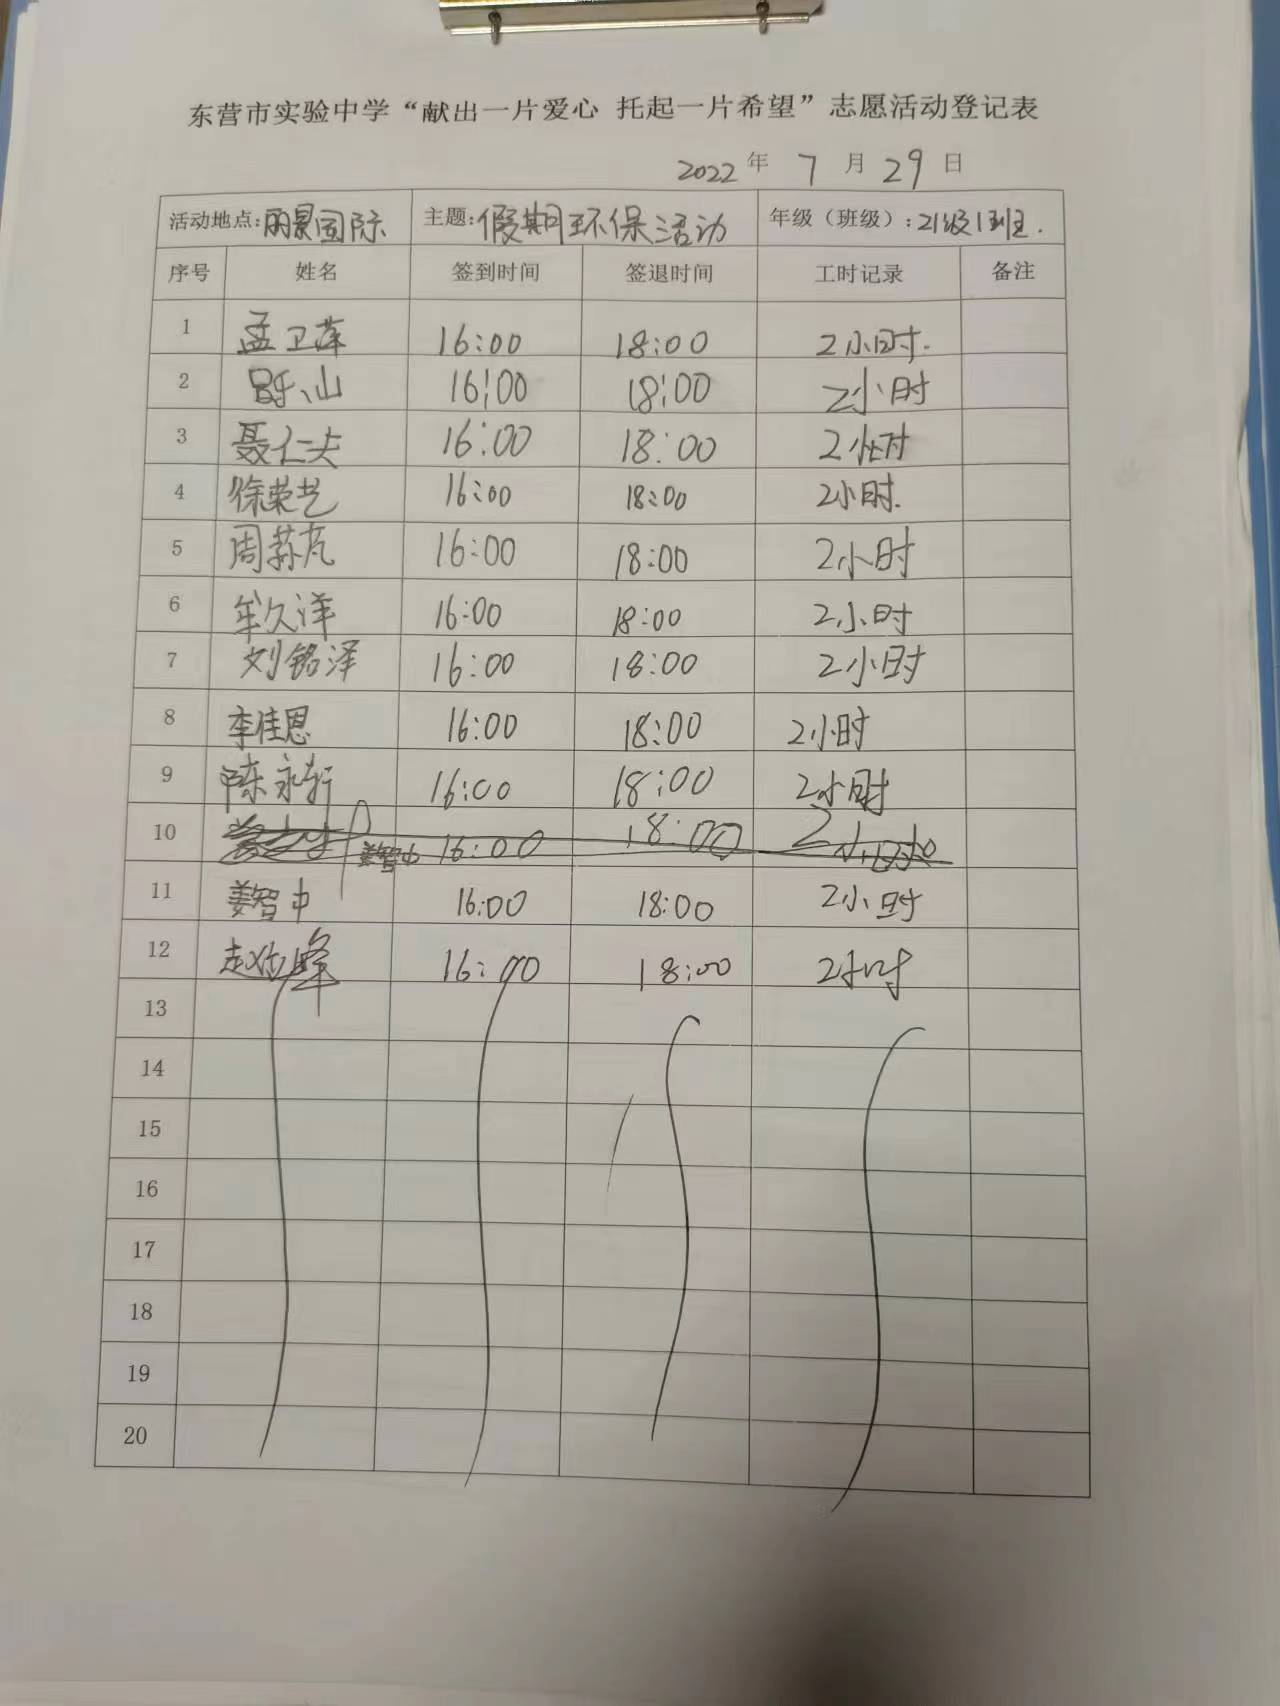 东营市实验中学“献出一片爱心 托起一片希望”志愿活动登记表
2022 年 7 月 29 日
活动地点:丽景国际 主题:假期环保活动 年级（班级）:21级1班.
序号 姓名 签到时间 签退时间 工时记录 备注
1 孟卫萍 16:00 18:00 2小时.
2 吕乐山 16:00 18:00 2小时
3 聂仁夫 16:00 18:00 2小时
4 徐荣艺 16:00 18:00 2小时.
5 周荪芃 16:00 18:00 2小时
6 牟久洋 16:00 18:00 2小时
7 刘铭泽 16:00 18:00 2小时
8 李佳恩 16:00 18:00 2小时
9 陈永轩 16:00 18:00 2小时
10 姜智中 16:00 18:00 2小时
11 姜智中 16:00 18:00 2小时
12 赵 峰 16:00 18:00 2小时
13
14
15
16
17
18
19
20